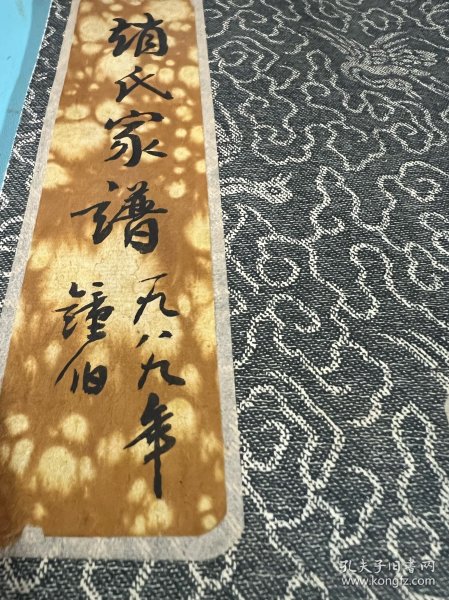 趙氏家譜
一九八九年
鐘伯
孔夫子旧书网
www.kongfz.com